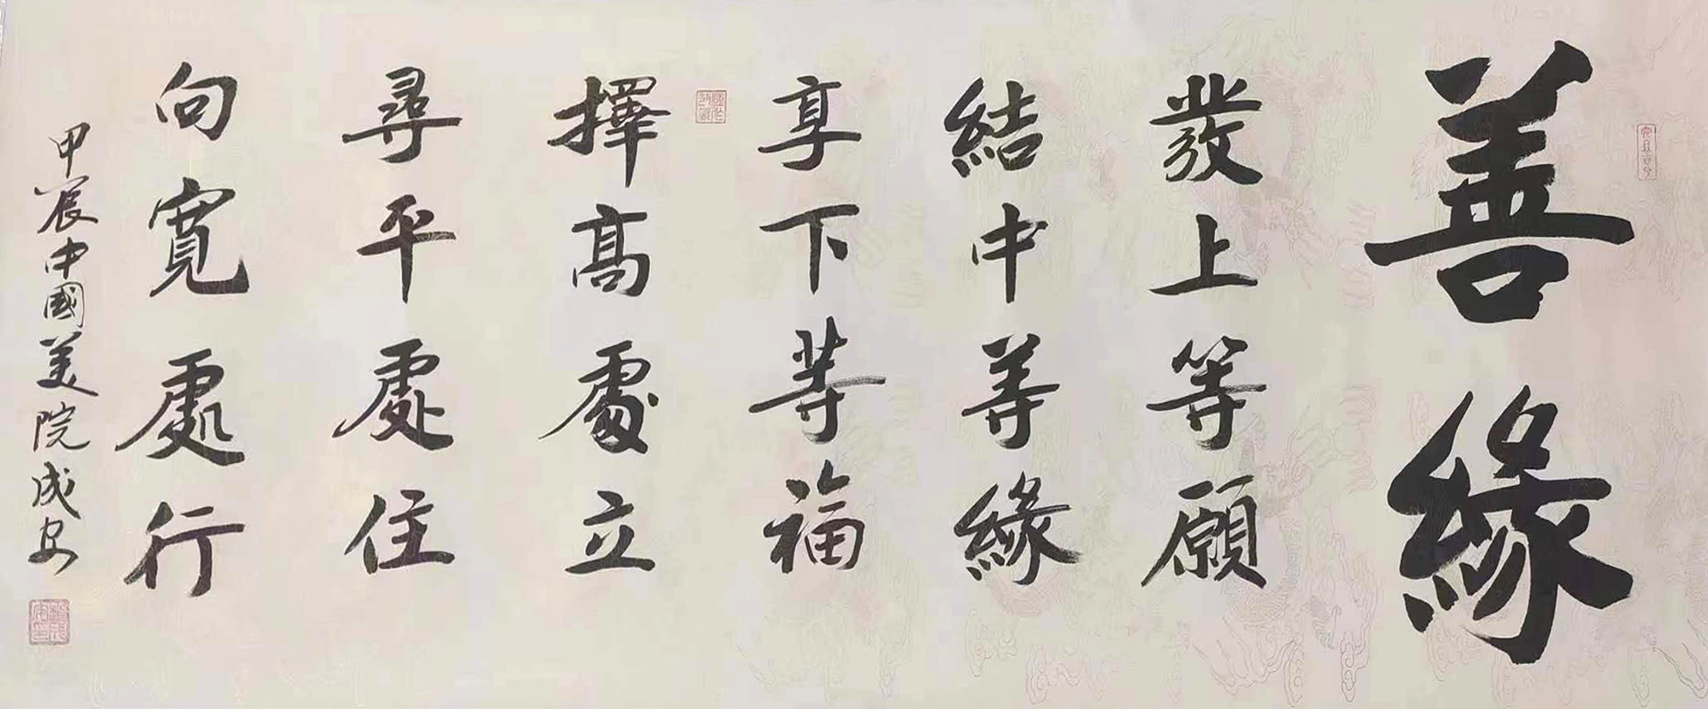 善緣
發上等願
結中等緣
享下等福
擇高處立
尋平處住
向寬處行
甲辰中國美院成安